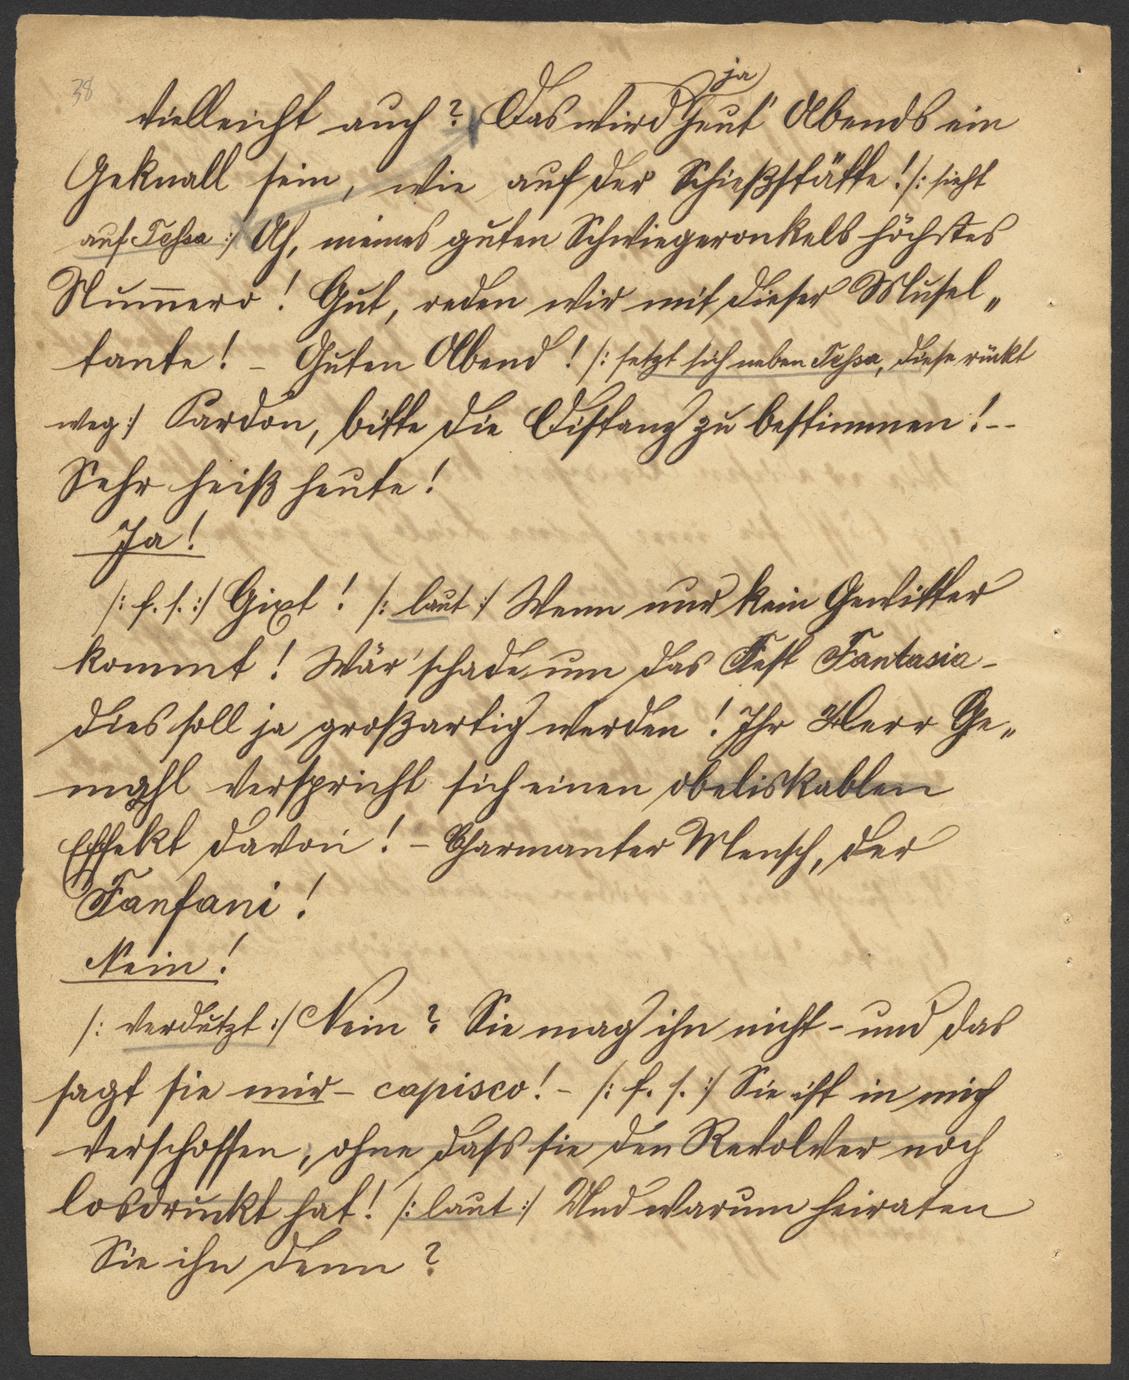 38
ja
vielleicht auch? Das wird heut' Abends ein
Geknall sein, wie auf der Schießstätte! /: sieht
auf Tessa :/ Ah, meines guten Schwiegeronkels höchstes
Num̄ero! Gut, reden wir mit dieser Musel„
tante! – Guten Abend! /: setzt sich neben Tessa, diese rückt
weg :/ Pardon, bitte die Distanz zu bestimmen! --
Sehr heiß heute!
Ja!
/: f. s. :/ Gixt! /: laut :/ Wenn nur kein Gewitter
kommt! Wär' schade um das Fest Fantasia –
dies soll ja großartig werden! Ihr Herr Ge„
mahl verspricht sich einen obeliskablen
Effekt davon! – Charmanter Mensch, der
Fanfani!
Nein!
/: verdutzt :/ Nein? Sie mag ihn nicht – und das
sagt sie mir – capisco! – /: f. s. :/ Sie ist in mich
verschossen, ohne dass sie den Revolver noch
losdruckt hat! /: laut :/ Und warum heiraten
Sie ihn denn?